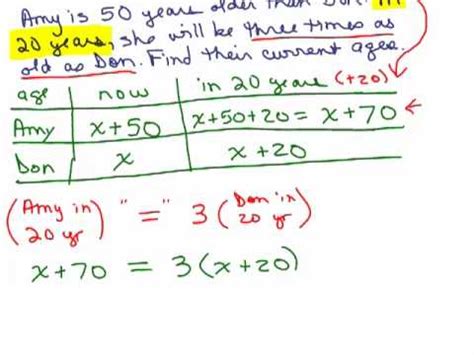 Amy is 50 years older than Don. In
20 years, she will be three times as
old as Don. Find their current ages.
age now in 20 years (+20)
Amy x+50 x+50+20 = x+70
Don x x+20
(Amy in 20 yr) "=" 3 (Don in 20 yr)
x+70 = 3(x+20)